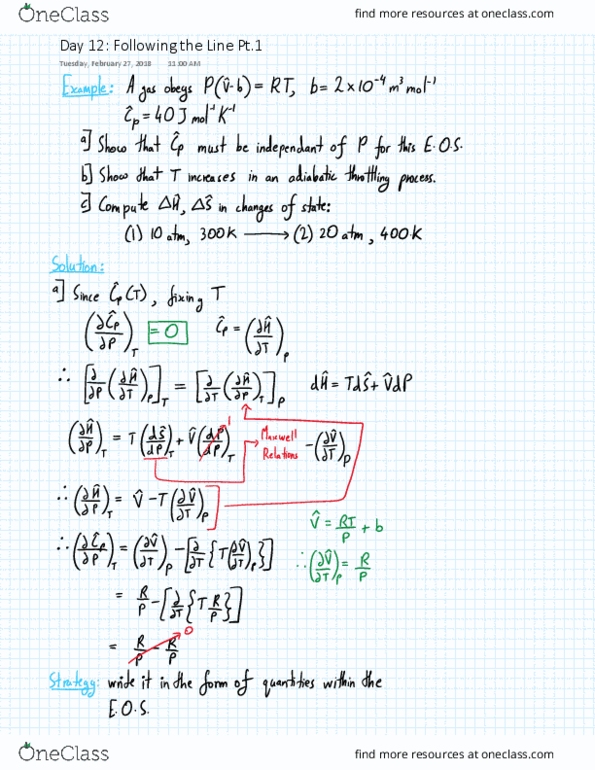 OneClass find more resources at oneclass.com
Day 12: Following the Line Pt.1
Tuesday, February 27, 2018 11:00 AM
Example: A gas obeys P(V̂-b) = RT, b = 2×10⁻⁴ m³ mol⁻¹
Ĉp = 40 J mol⁻¹ K⁻¹
a] Show that Ĉp must be independant of P for this E.O.S.
b] Show that T increases in an adiabatic throttling process.
c] Compute ΔĤ, ΔŜ in changes of state:
(1) 10 atm, 300K ⟶ (2) 20 atm, 400K
Solution:
a] Since Ĉp(T), fixing T
(∂Ĉp/∂P)_T = 0 Ĉp = (∂Ĥ/∂T)_P
∴ [∂/∂P (∂Ĥ/∂T)_P]_T = [∂/∂T (∂Ĥ/∂P)_T]_P dĤ = TdŜ + V̂dP
(∂Ĥ/∂P)_T = T(dŜ/dP)_T + V̂(dP/dP)_T 1 Maxwell Relations -(∂V̂/∂T)_P
∴ (∂Ĥ/∂P)_T = V̂ - T(∂V̂/∂T)_P]
V̂ = RT/P + b
∴ (∂Ĉp/∂P)_T = (∂V̂/∂T)_P - [∂/∂T {T(∂V̂/∂T)_P}] ∴ (∂V̂/∂T)_P = R/P
= R/P - [∂/∂T {T R/P}]
= R/P - R/P 0
Strategy: write it in the form of quantities within the
E.O.S.
OneClass find more resources at oneclass.com